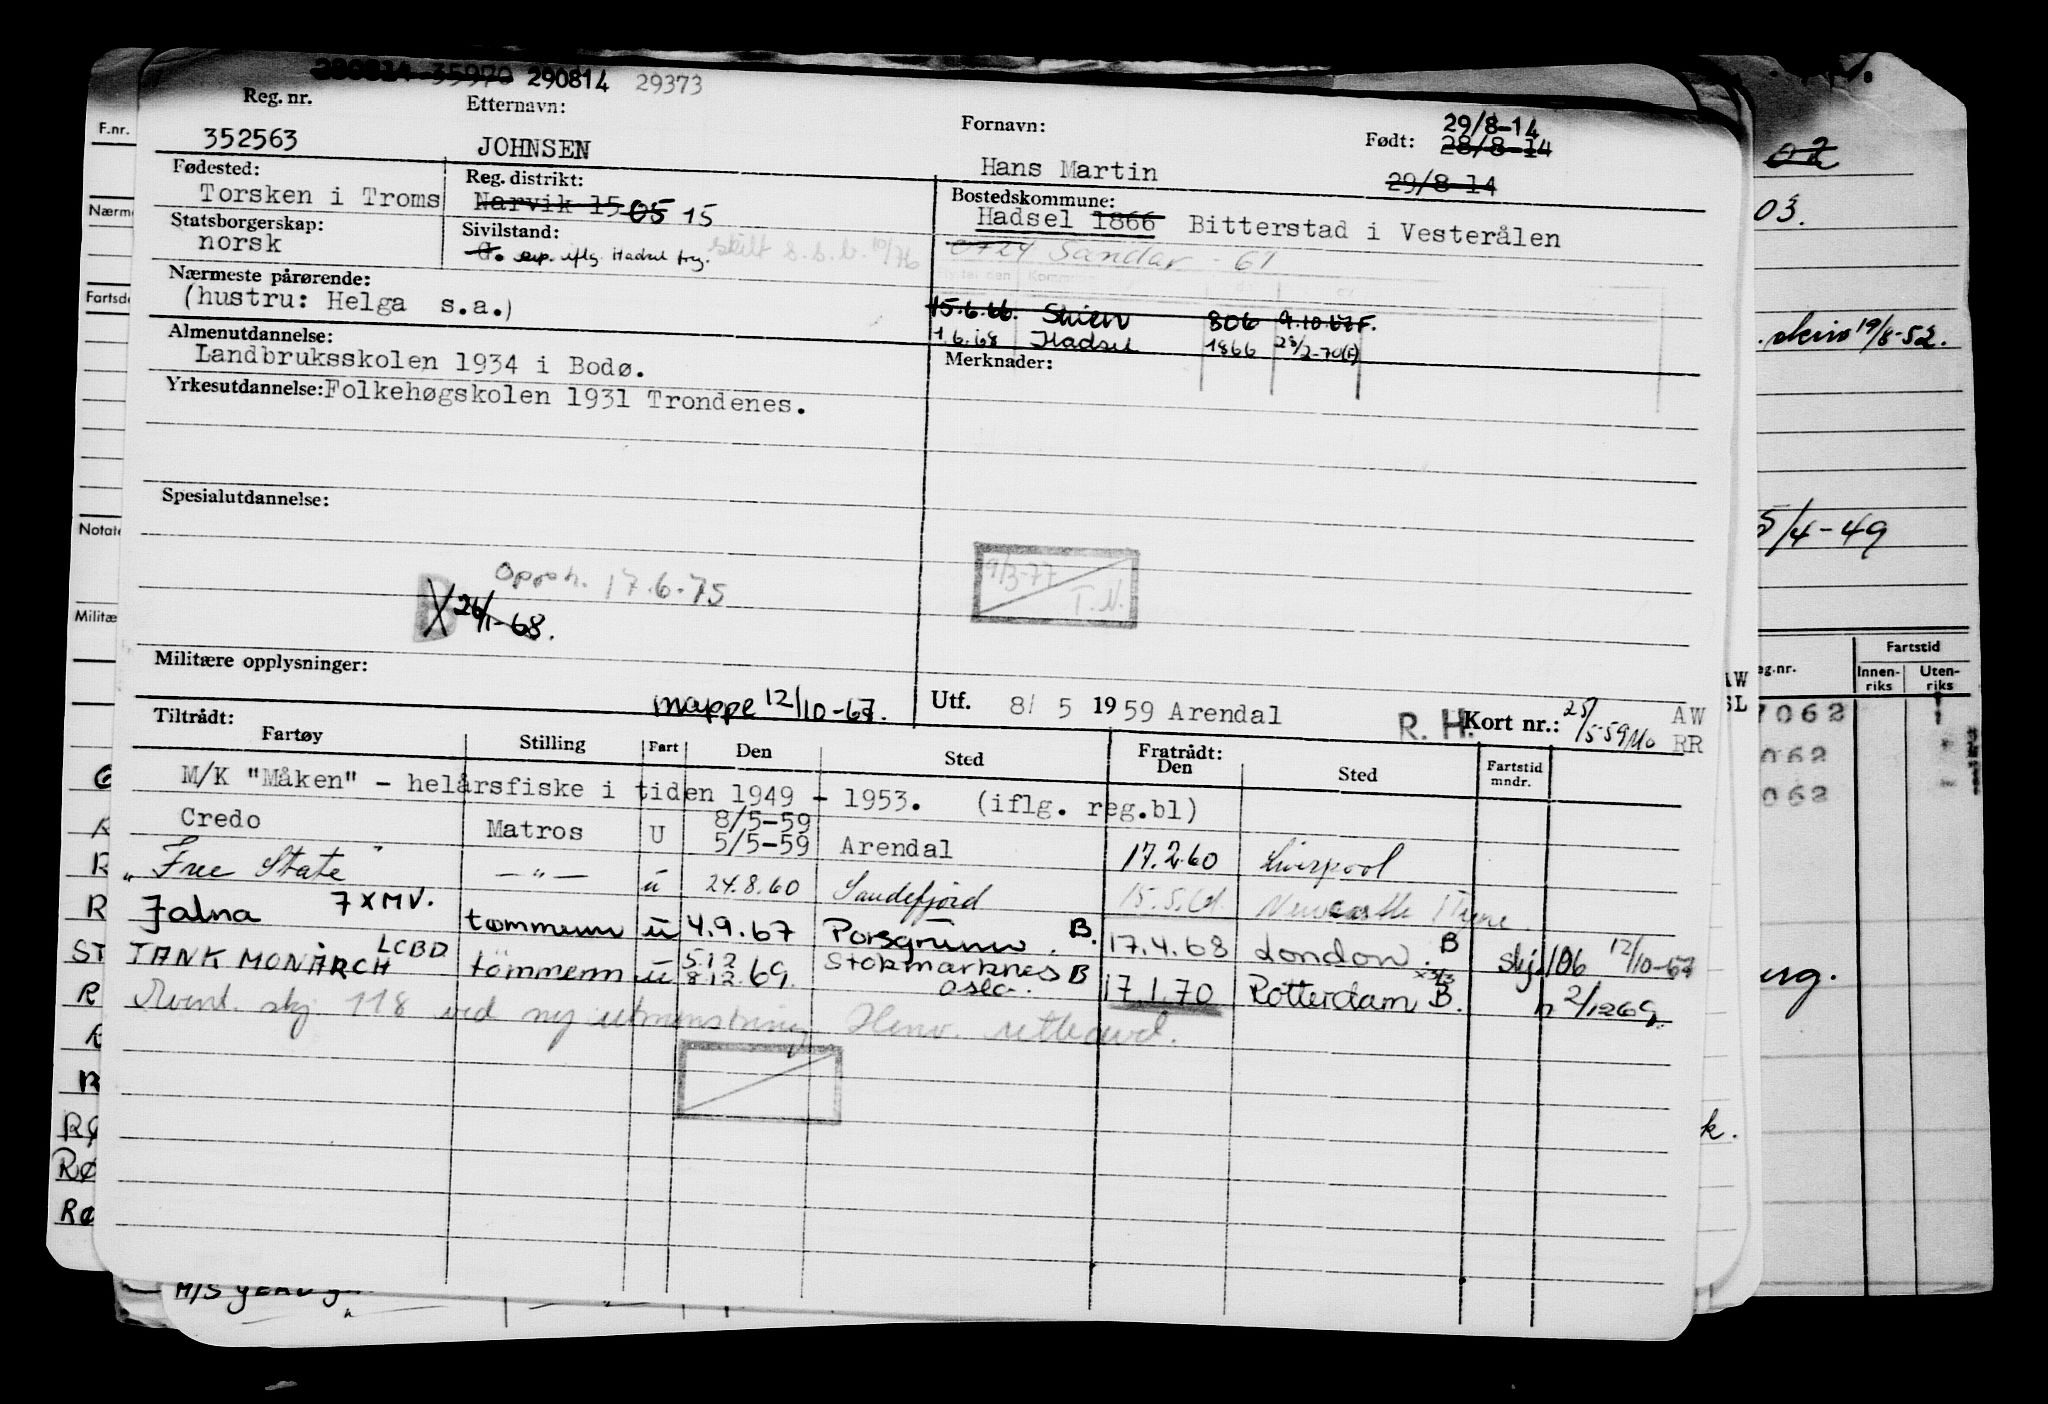 280814 35970 290814 29373
Reg. nr. Etternavn: Fornavn: Født: 29/8-14
352563 JOHNSEN Hans Martin 28/8-14
29/8-14
Fødested: Reg. distrikt: Bostedskommune:
Torsken i Troms Narvik 15 05 15 Hadsel 1866 Bitterstad i Vesterålen
Statsborgerskap: Sivilstand: 0724 Sandar - 61
norsk G. iflg. Hadsel skilt s.s.b. 10/76
Nærmeste pårørende:
(hustru: Helga s.a.) 15.6.66. Skien 806 9.10.67 F.
Almenutdannelse: 1.6.68 Hadsel 1866 23/2-70(F)
Landbruksskolen 1934 i Bodø. Merknader:
Yrkesutdannelse: Folkehøgskolen 1931 Trondenes.
Spesialutdannelse:
Opph. 17.6.75 9/3-77
B X 26/1-68. T.N.
Militære opplysninger:
mappe 12/10-67. Utf. 8/ 5 1959 Arendal R. H. Kort nr.: 25/5-59 AW
RR
Tiltrådt: Fratrådt:
Fartøy Stilling Fart Den Sted Den Sted Fartstid mndr.
M/K "Måken" - helårsfiske i tiden 1949 - 1953. (iflg. reg.bl)
Credo Matros U 8/5-59
5/5-59 Arendal 17.2.60 Liverpool
"Free State" — " — u 24.8.60 Sandefjord 15.5.61 Newcastle Tyne.
Jalna 7XMV. tømmerm u 4.9.67 Porsgrunn. B. 17.4.68 London. B skj 106 12/10-67
TANK MONARCH LCBD tömmerm u 5.12
8.12.69. Stokmarknes B
Oslo. 17.1.70 Rotterdam B. n 2/1269.
skj 118 ved ny utmønstring Henv.
F.nr.
Nærm
Fartsd
Notate
Militæ
R
R
ST
R
R
RØ
RØ
M/S
02
03.
19/8-52.
5/4-49
Fartstid
eg.nr. Innenriks Utenriks
7062
062
062
AW
SL
k.